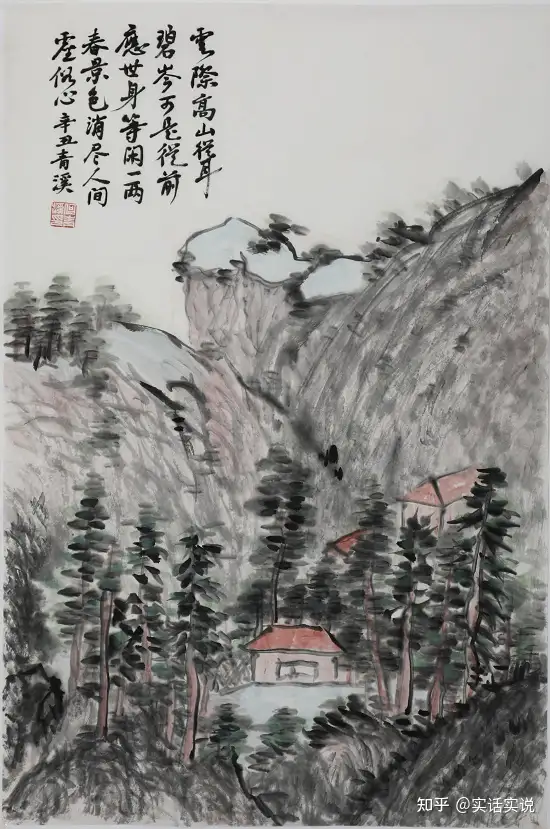 雲際高山聳
碧岑可是從前
應世身等闲一兩
春景色消尽人间
塵俗心 辛丑青溪
知乎 @实话实说